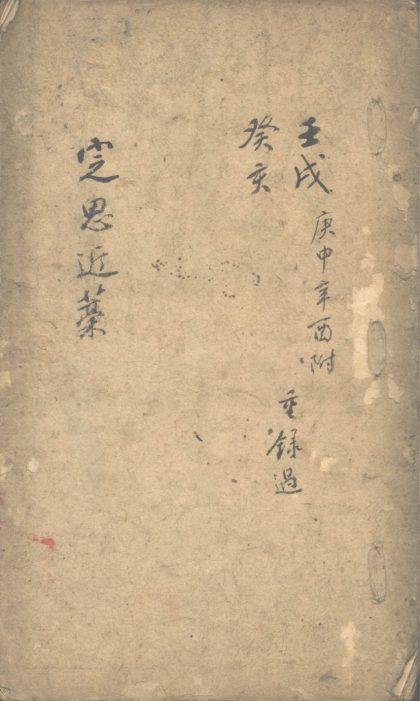 壬戌
癸亥
庚申辛酉附
重錄過
㝎思近藁